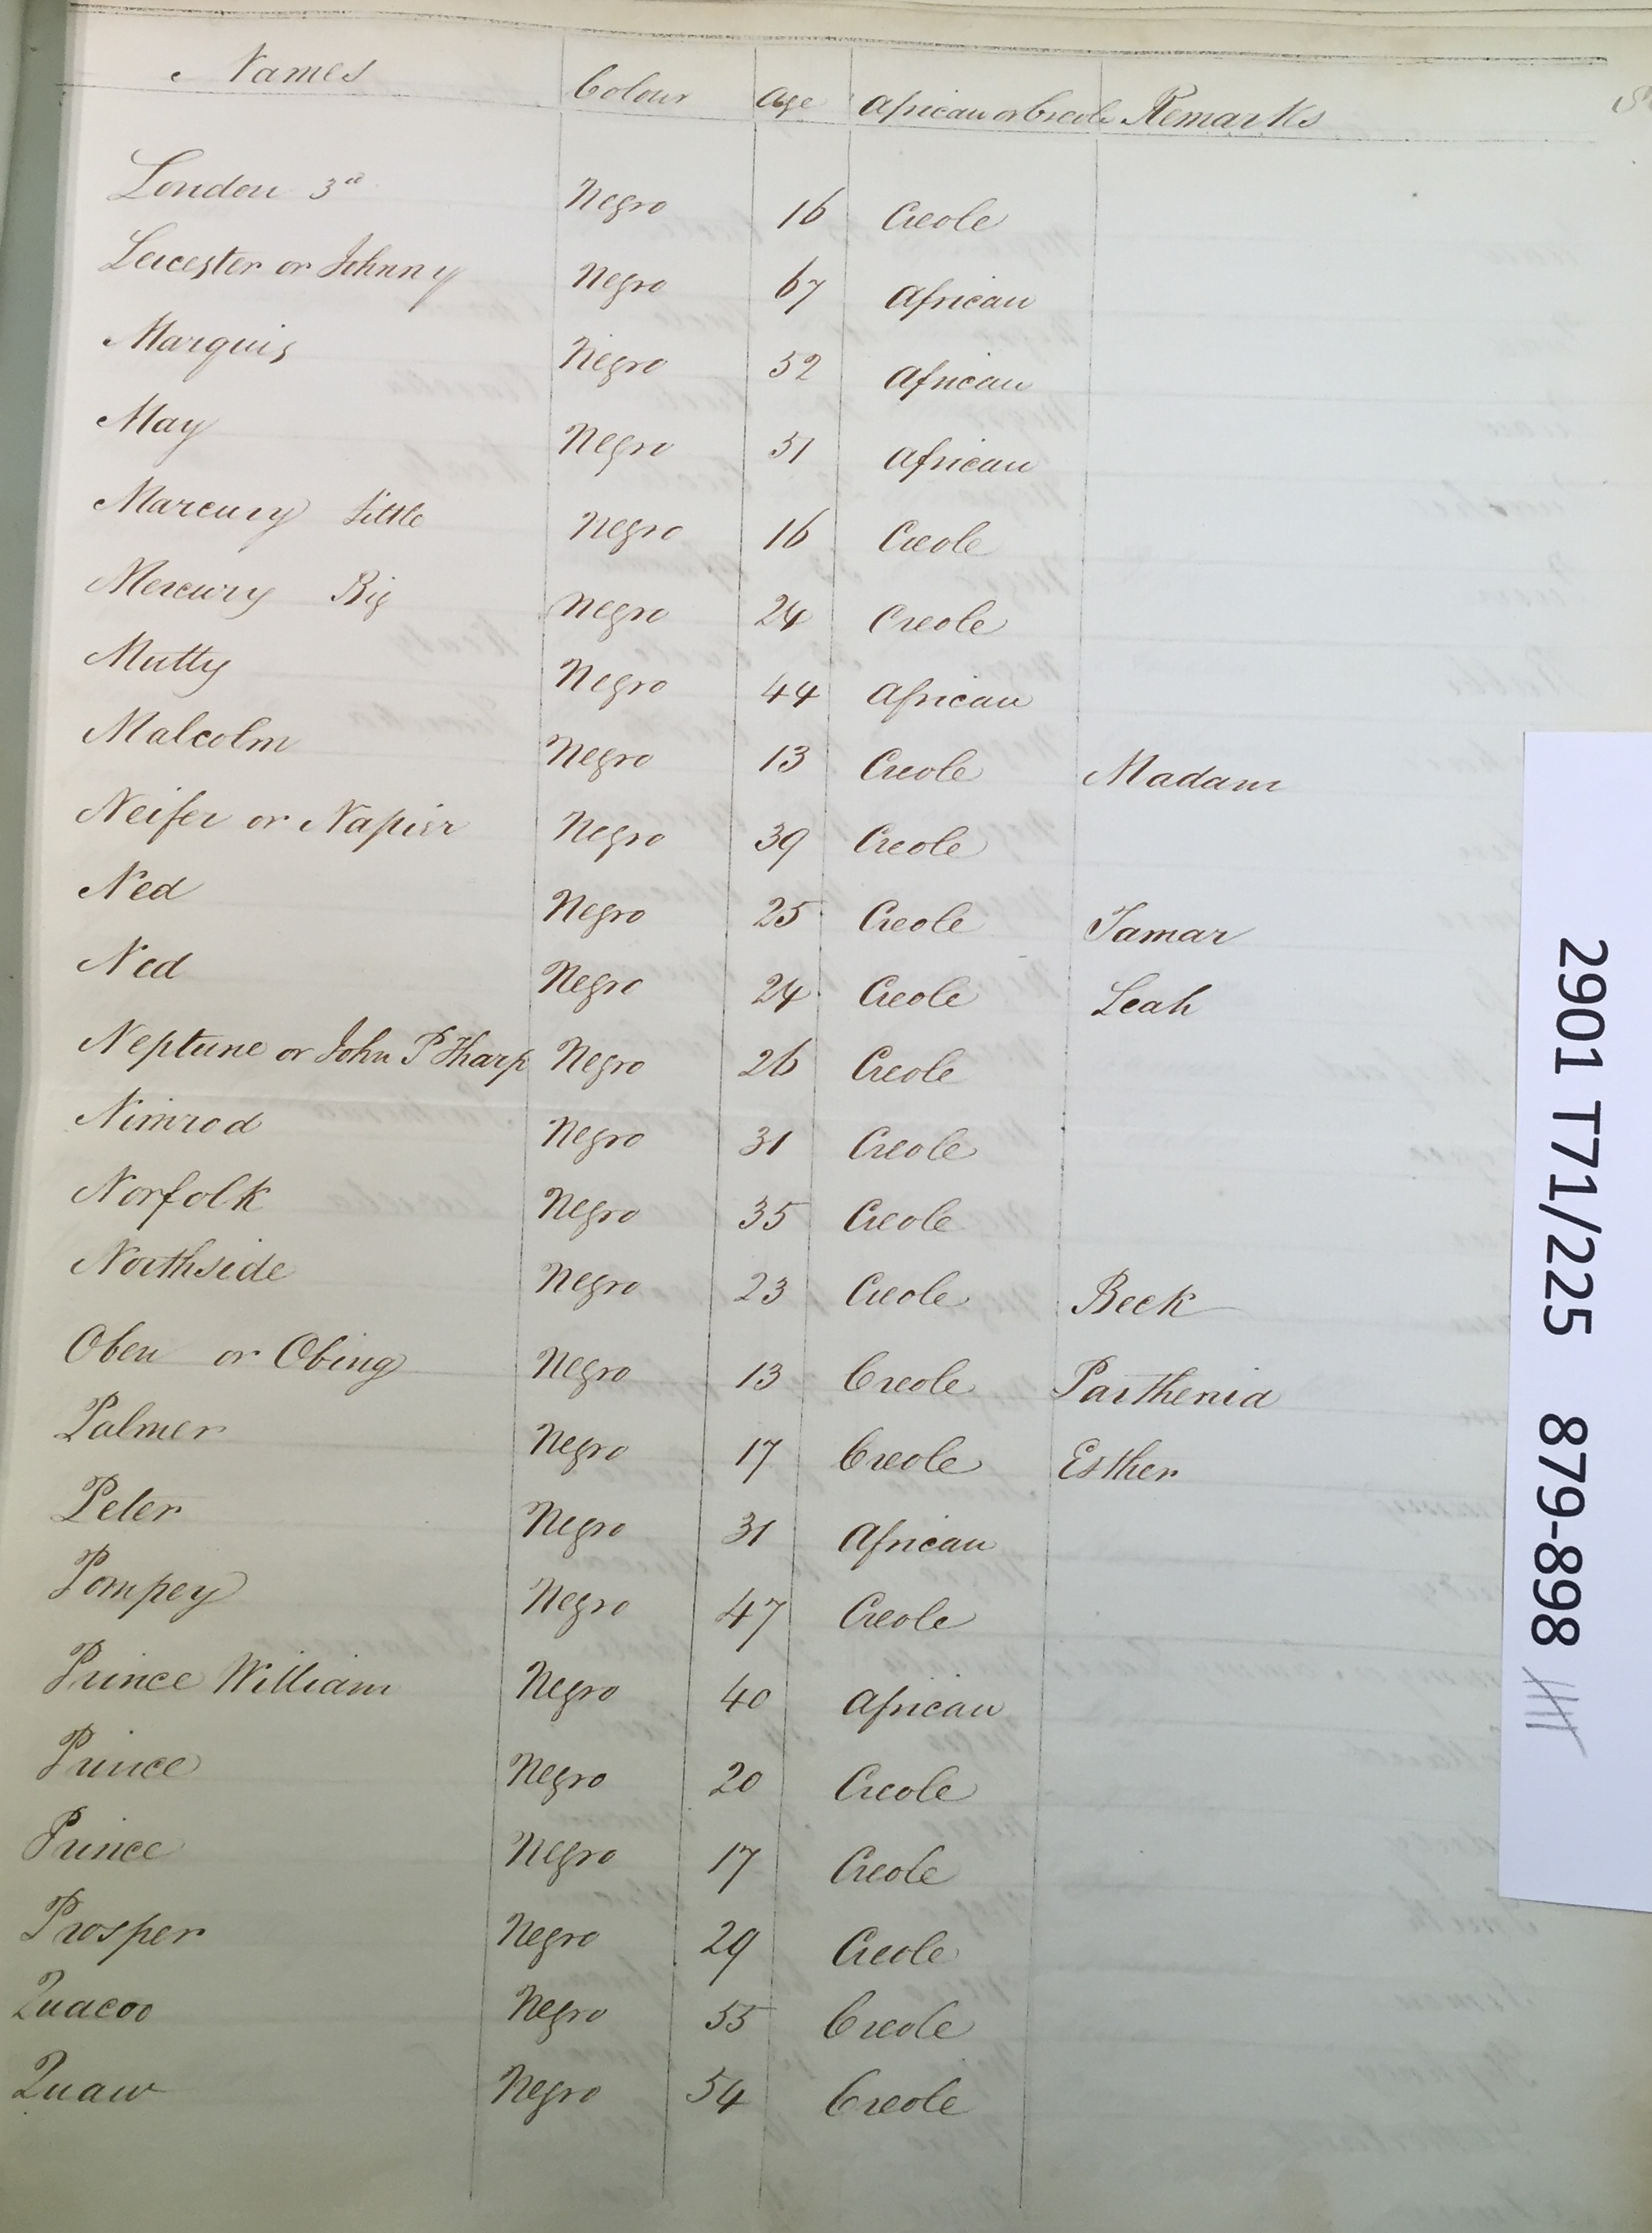 Names Colour Age African or Creole Remarks
London 3d Negro 16 Creole
Leicester or Johnny Negro 67 African
Marquis Negro 52 African
May Negro 51 African
Marcury Little Negro 16 Creole
Mercury Big Negro 24 Creole
Mutty Negro 44 African
Malcolm Negro 13 Creole Madam
Neifer or Napier Negro 39 Creole
Ned Negro 25 Creole Tamar
Ned Negro 24 Creole Leah
Neptune or John P Tharp Negro 26 Creole
Nimrod Negro 31 Creole
Norfolk Negro 35 Creole
Northside Negro 23 Creole Beck
Oben or Obing Negro 13 Creole Parthenia
Palmer Negro 17 Creole Esther
Peter Negro 31 African
Pompey Negro 47 Creole
Prince William Negro 40 African
Prince Negro 20 Creole
Prince Negro 17 Creole
Prosper Negro 29 Creole
Quacoo Negro 55 Creole
Quaw Negro 54 Creole
2901 T71/225 879-898